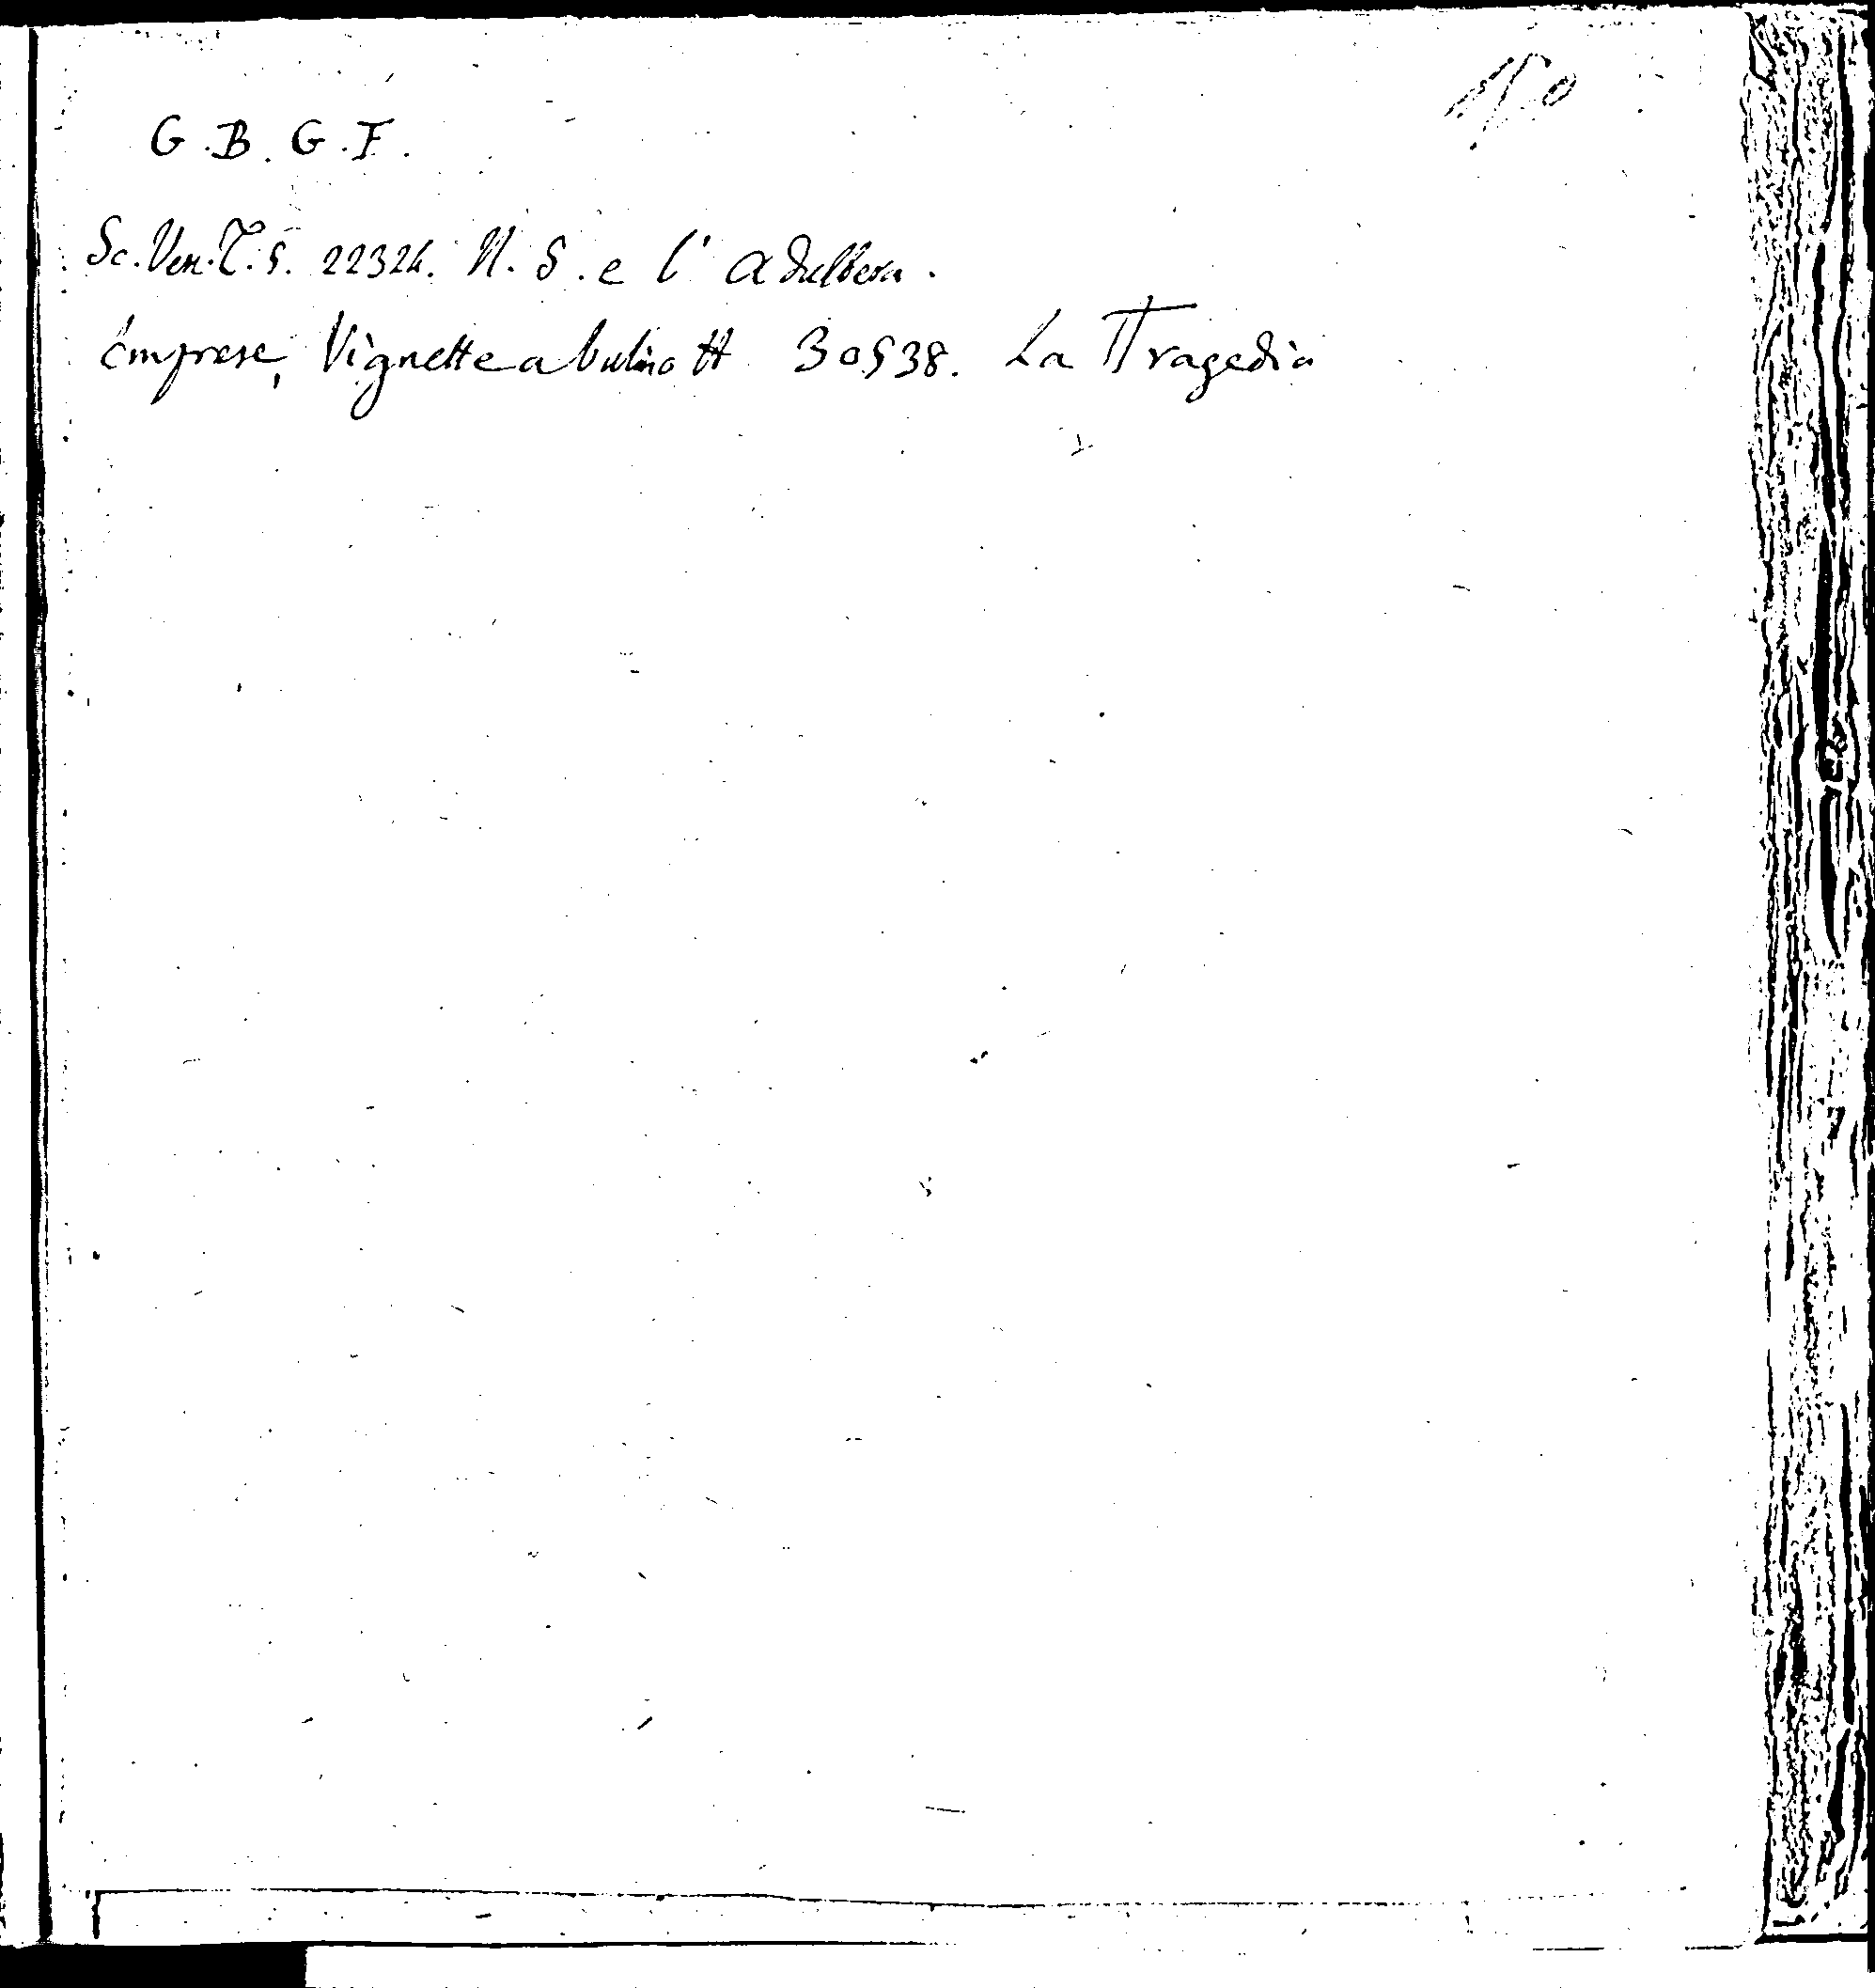 150
G.B.G.F.
Sc. Ven. T. 5. 22324. N. S. e l' adultera.
Imprese, Vignette a bulino tt 30538. La Tragedia